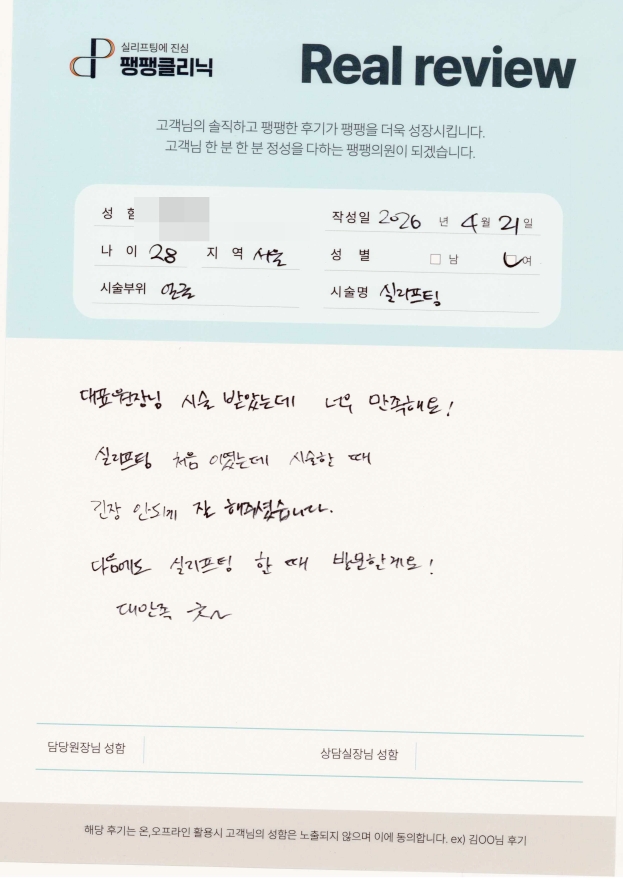 실리프팅에 진심
팽팽클리닉
Real review
고객님의 솔직하고 팽팽한 후기가 팽팽을 더욱 성장시킵니다.
고객님 한 분 한 분 정성을 다하는 팽팽의원이 되겠습니다.
성 함
작성일 2026 년 4월 21일
나 이 28 지 역 서울
성 별 남 여
시술부위 얼굴
시술명 실리프팅
대표원장님 시술 받았는데 너무 만족해요!
실리프팅 처음 이였는데 시술할 때
긴장 안되게 잘 해주셨습니다.
다음에도 실리프팅 할 때 방문할게요!
대만족 굿~
담당원장님 성함
상담실장님 성함
해당 후기는 온,오프라인 활용시 고객님의 성함은 노출되지 않으며 이에 동의합니다. ex) 김OO님 후기